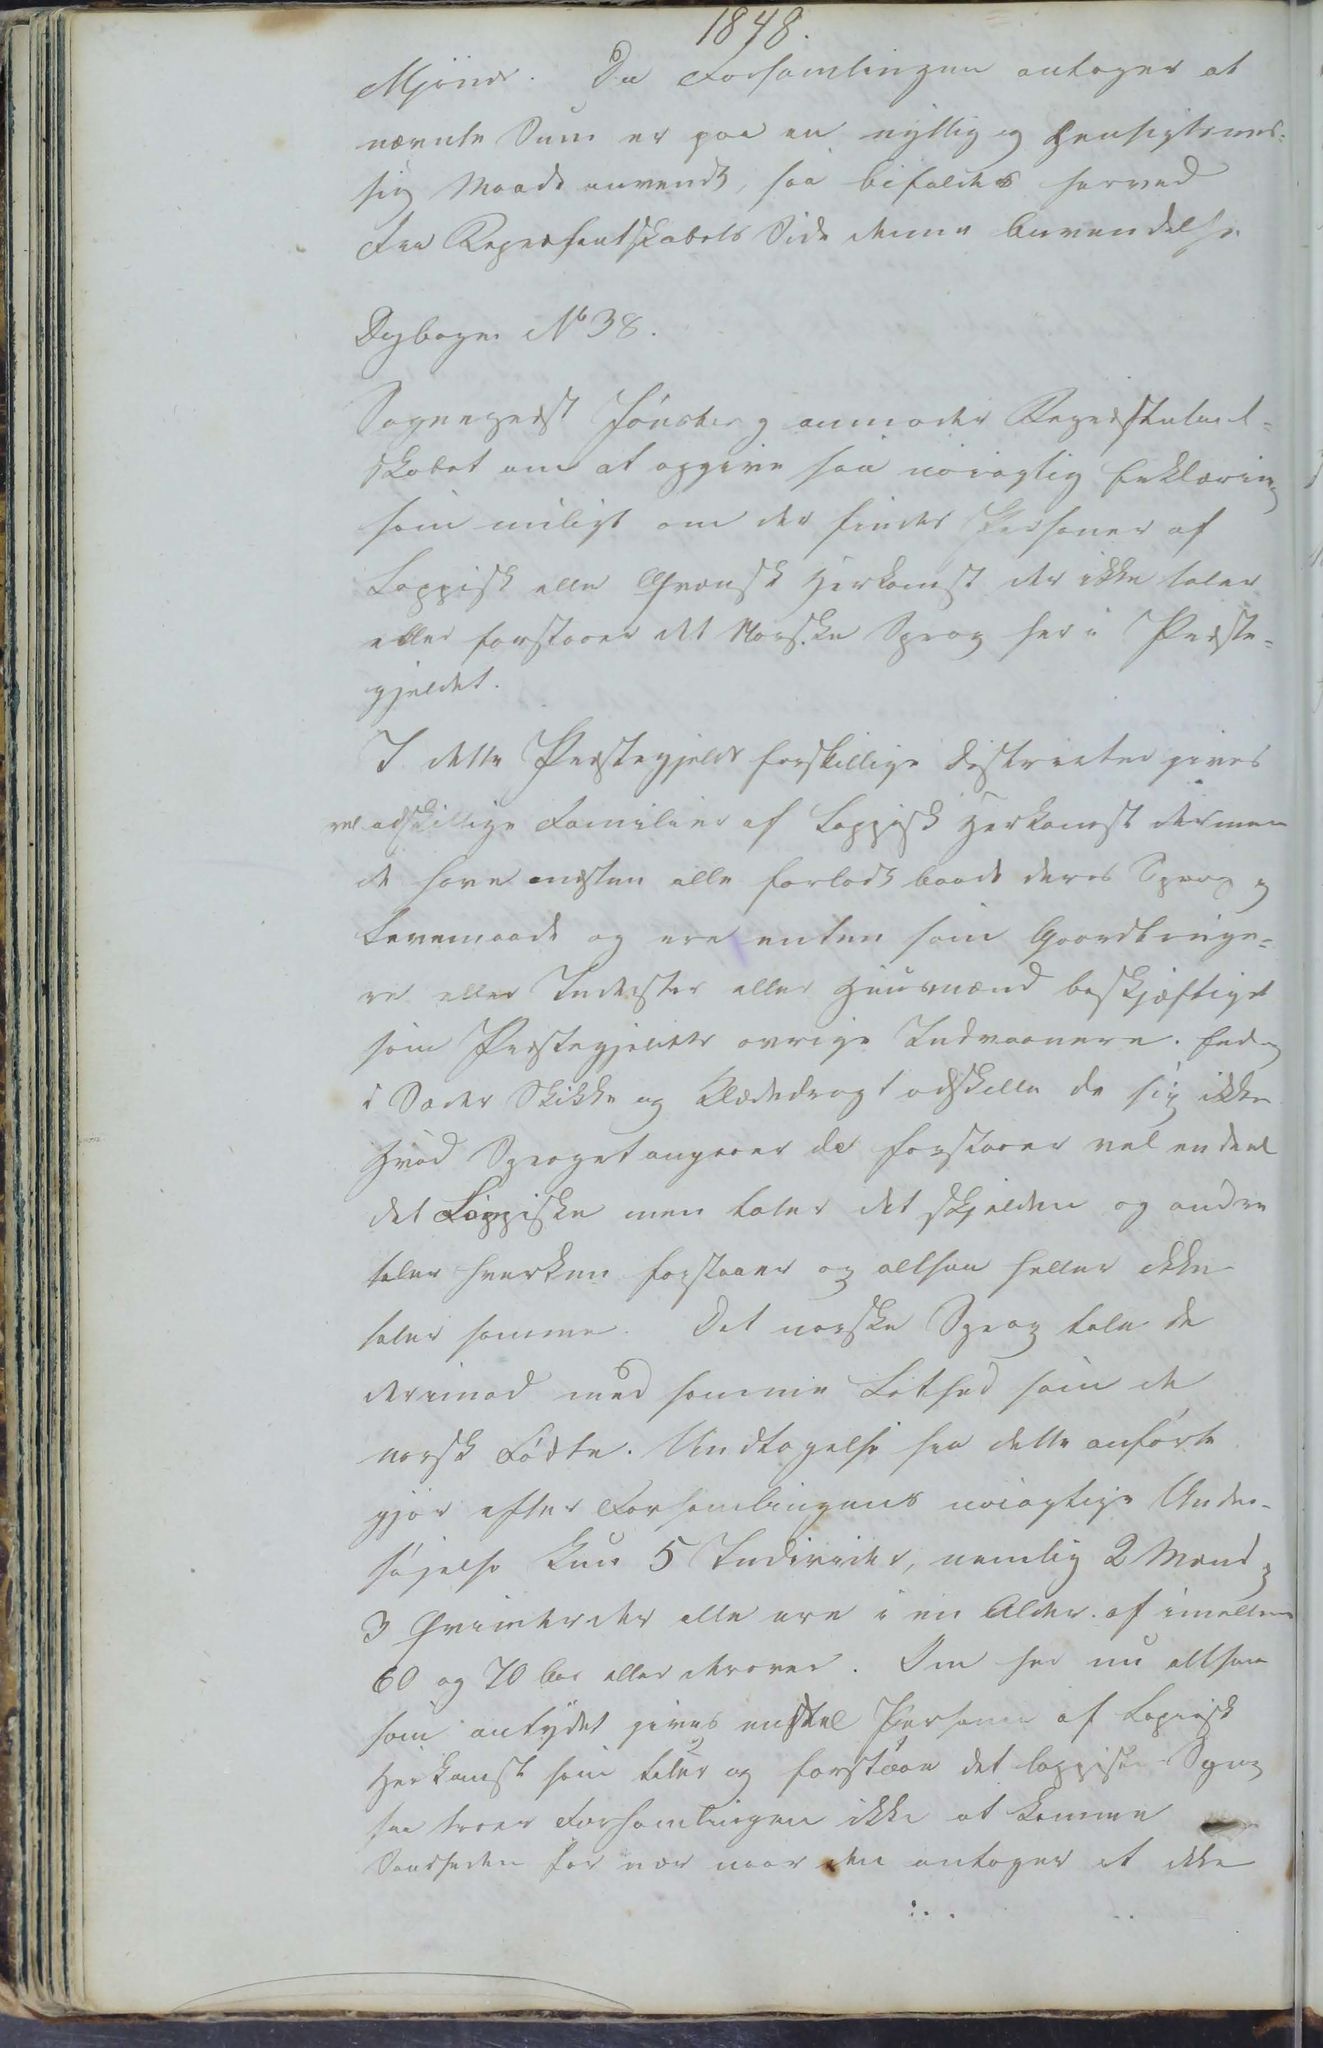 1848.
Mjönes. Da Forsamlingen antager at
nævnte Sum er paa en nyttig og Hensigtsmes-
sig Maade anvendt, saa bifaldes herved
fra Repræsentskabets Side denne Anvendelse.
Dagbogen No 38.
Sognepræst Jönsberg anmoder Repræsentand-
skabet om at opgive saa nöiagtig Erklæring
som muligt om der findes Personer af
Lappisk eller Qvænsk Herkomst der ikke taler
eller forstaaer det Norske Sprog her i Præste-
gjeldet.
I dette Præstegjelds forskillige Districter gives
vel adskillige Familier af Lappisk Herkomst dermen
de have næsten alle forladt baade deres Sprog og
Levemaade og ere enten som Gaardbruge-
re eller Inderster eller Huusmænd beskjæftiget
som Præstegjeldets övrige Indvaanere. End og
i Sæder Skikke og Klædedragt adskille de sig ikke
Hvad Sproget angaaer da forstaaer vel en deel
det Lappiske men taler det skjelden og andre
taler hverken forstaaer og altsaa heller ikke
taler samme. Det norske Sprog tale de
derimod med samme Lethed som de
norsk Födte. Undtagelse fra dette anförte
gjör efter Forsamlingens nöiagtige Under-
sögelse kun 5 Individer, nemlig 2 Mænd og
3 Qvinder der alle ere i en Alder af imellem
60 og 70 Aar eller derover. Om her nu altsaa
som antydet gives endeel Personer af Lapisk
Herkomst som taler og forstaae det lappiske Sprog
saa troer Forsamlingen ikke at komme
Sandheden for nær naar den antager at ikke